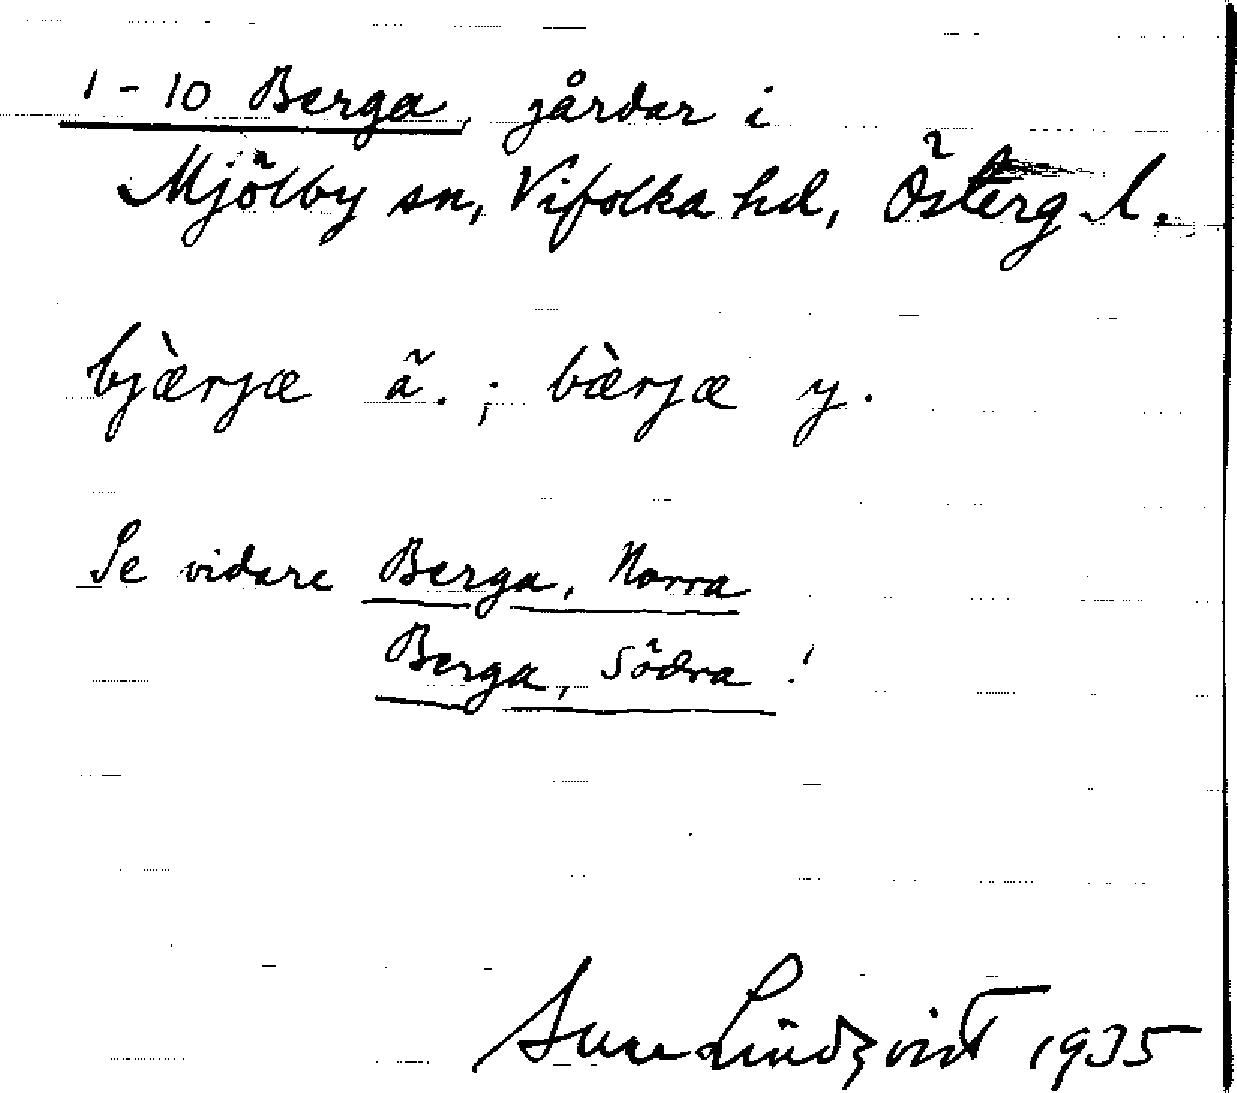 1-10 Berga, gårdar i
Mjölby sn, Vifolka hd, Österg. l.
bjæ̀rjæ ä. ; bæ̀rjæ y.
Se vidare Berga, Norra
Berga, Södra !
Sune Lindqvist 1935